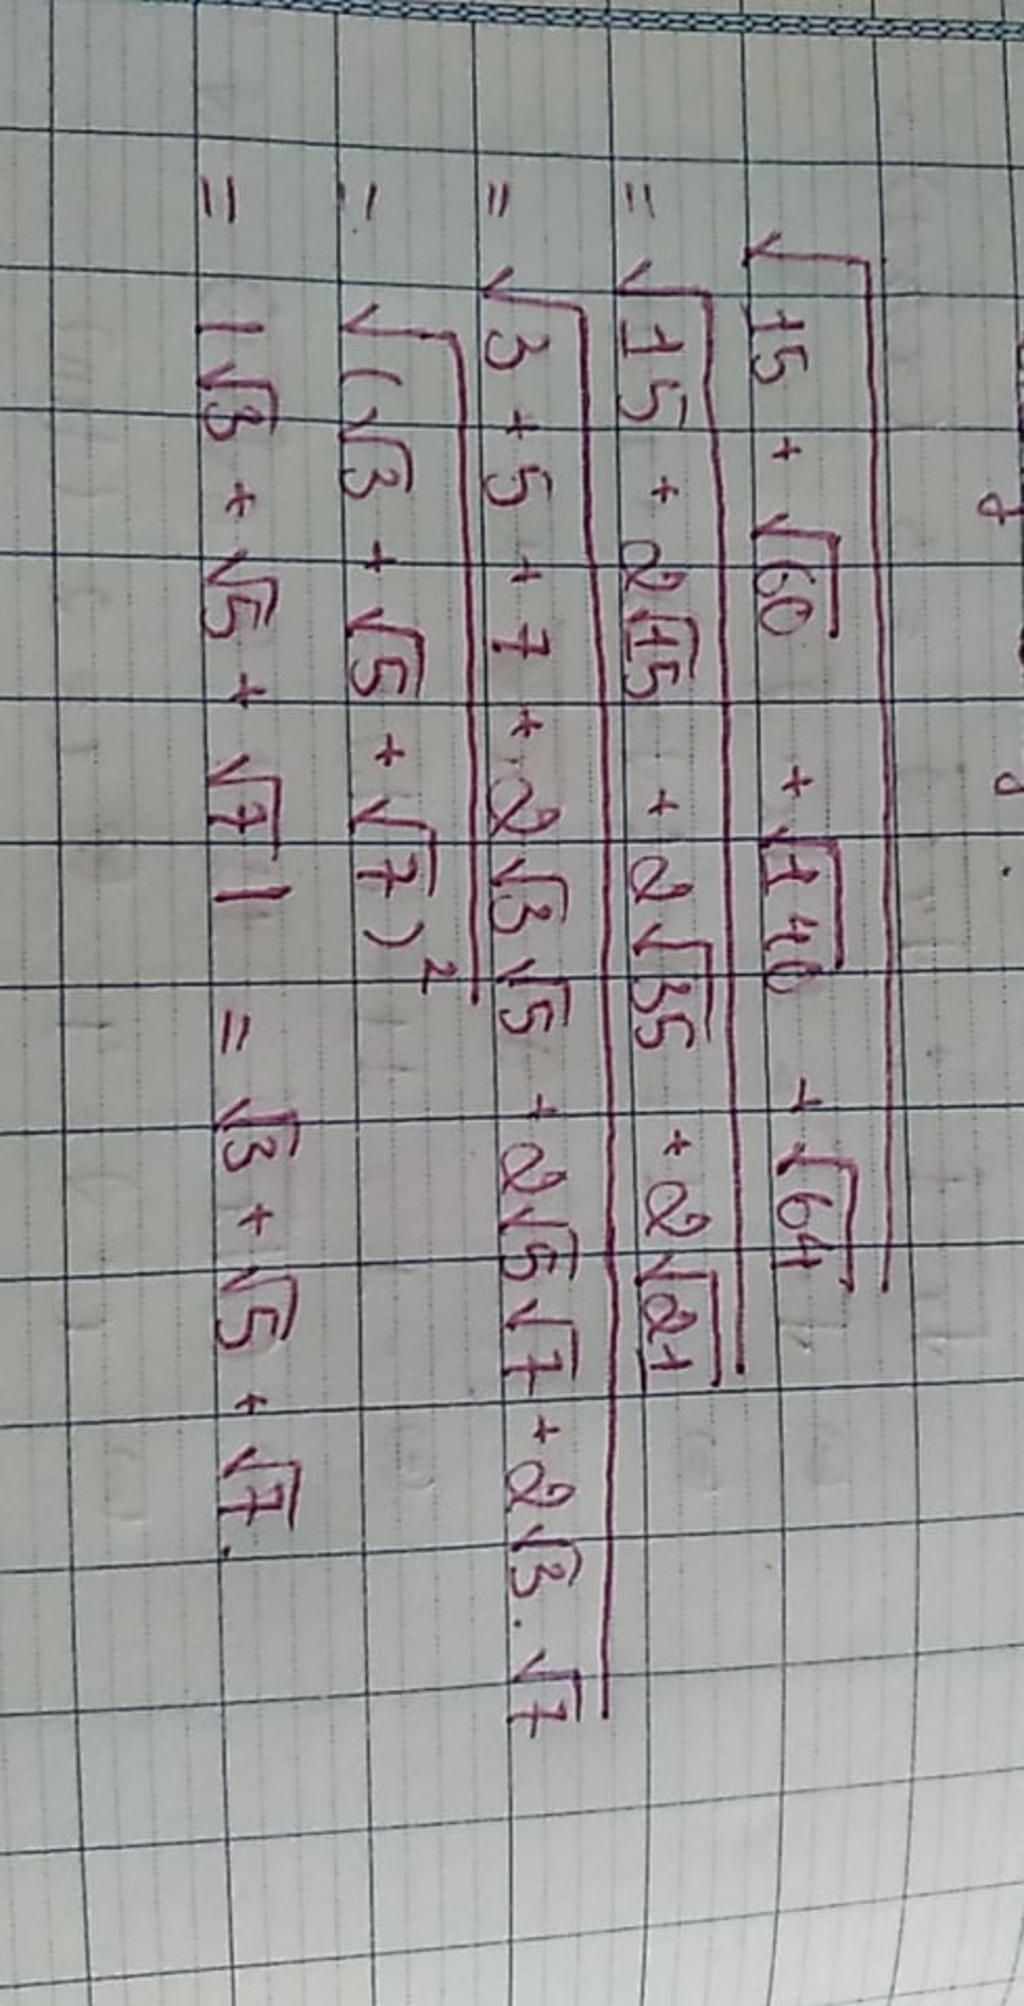 √(15 + √60 + √140 + √64)
= √(15 + 2√15 + 2√35 + 2√21)
= √(3 + 5 + 7 + 2√3√5 + 2√5√7 + 2√3.√7)
= √((√3 + √5 + √7)²)
= |√3 + √5 + √7| = √3 + √5 + √7.